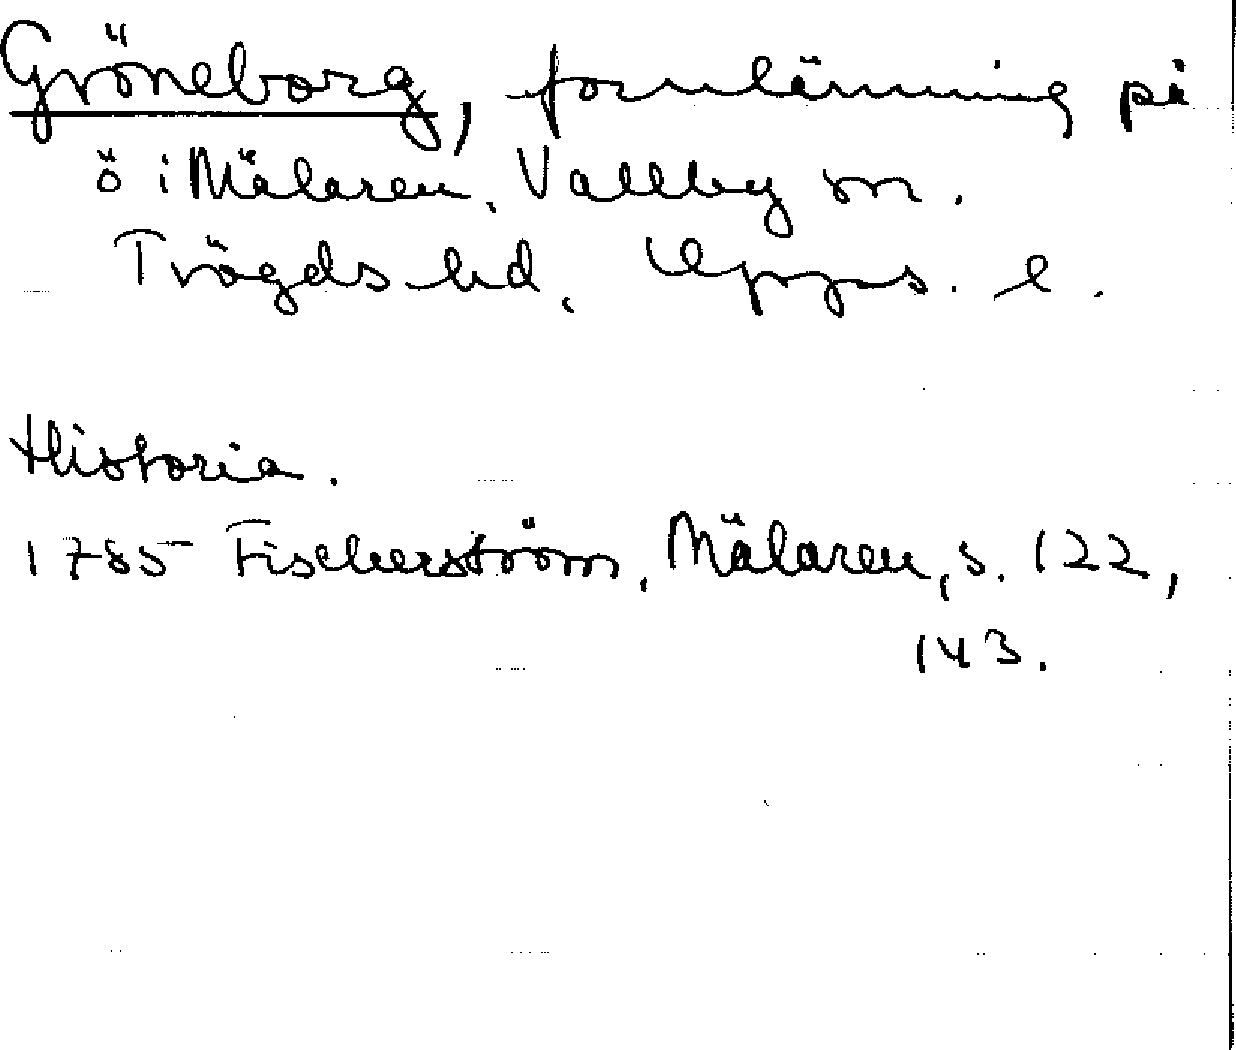 Gröneborg, fornlämning på
ö i Mälaren, Vallby sn.
Trögds hd, Upps. l.
Historia.
1785 Fischerström, Mälaren, s. 122,
143.